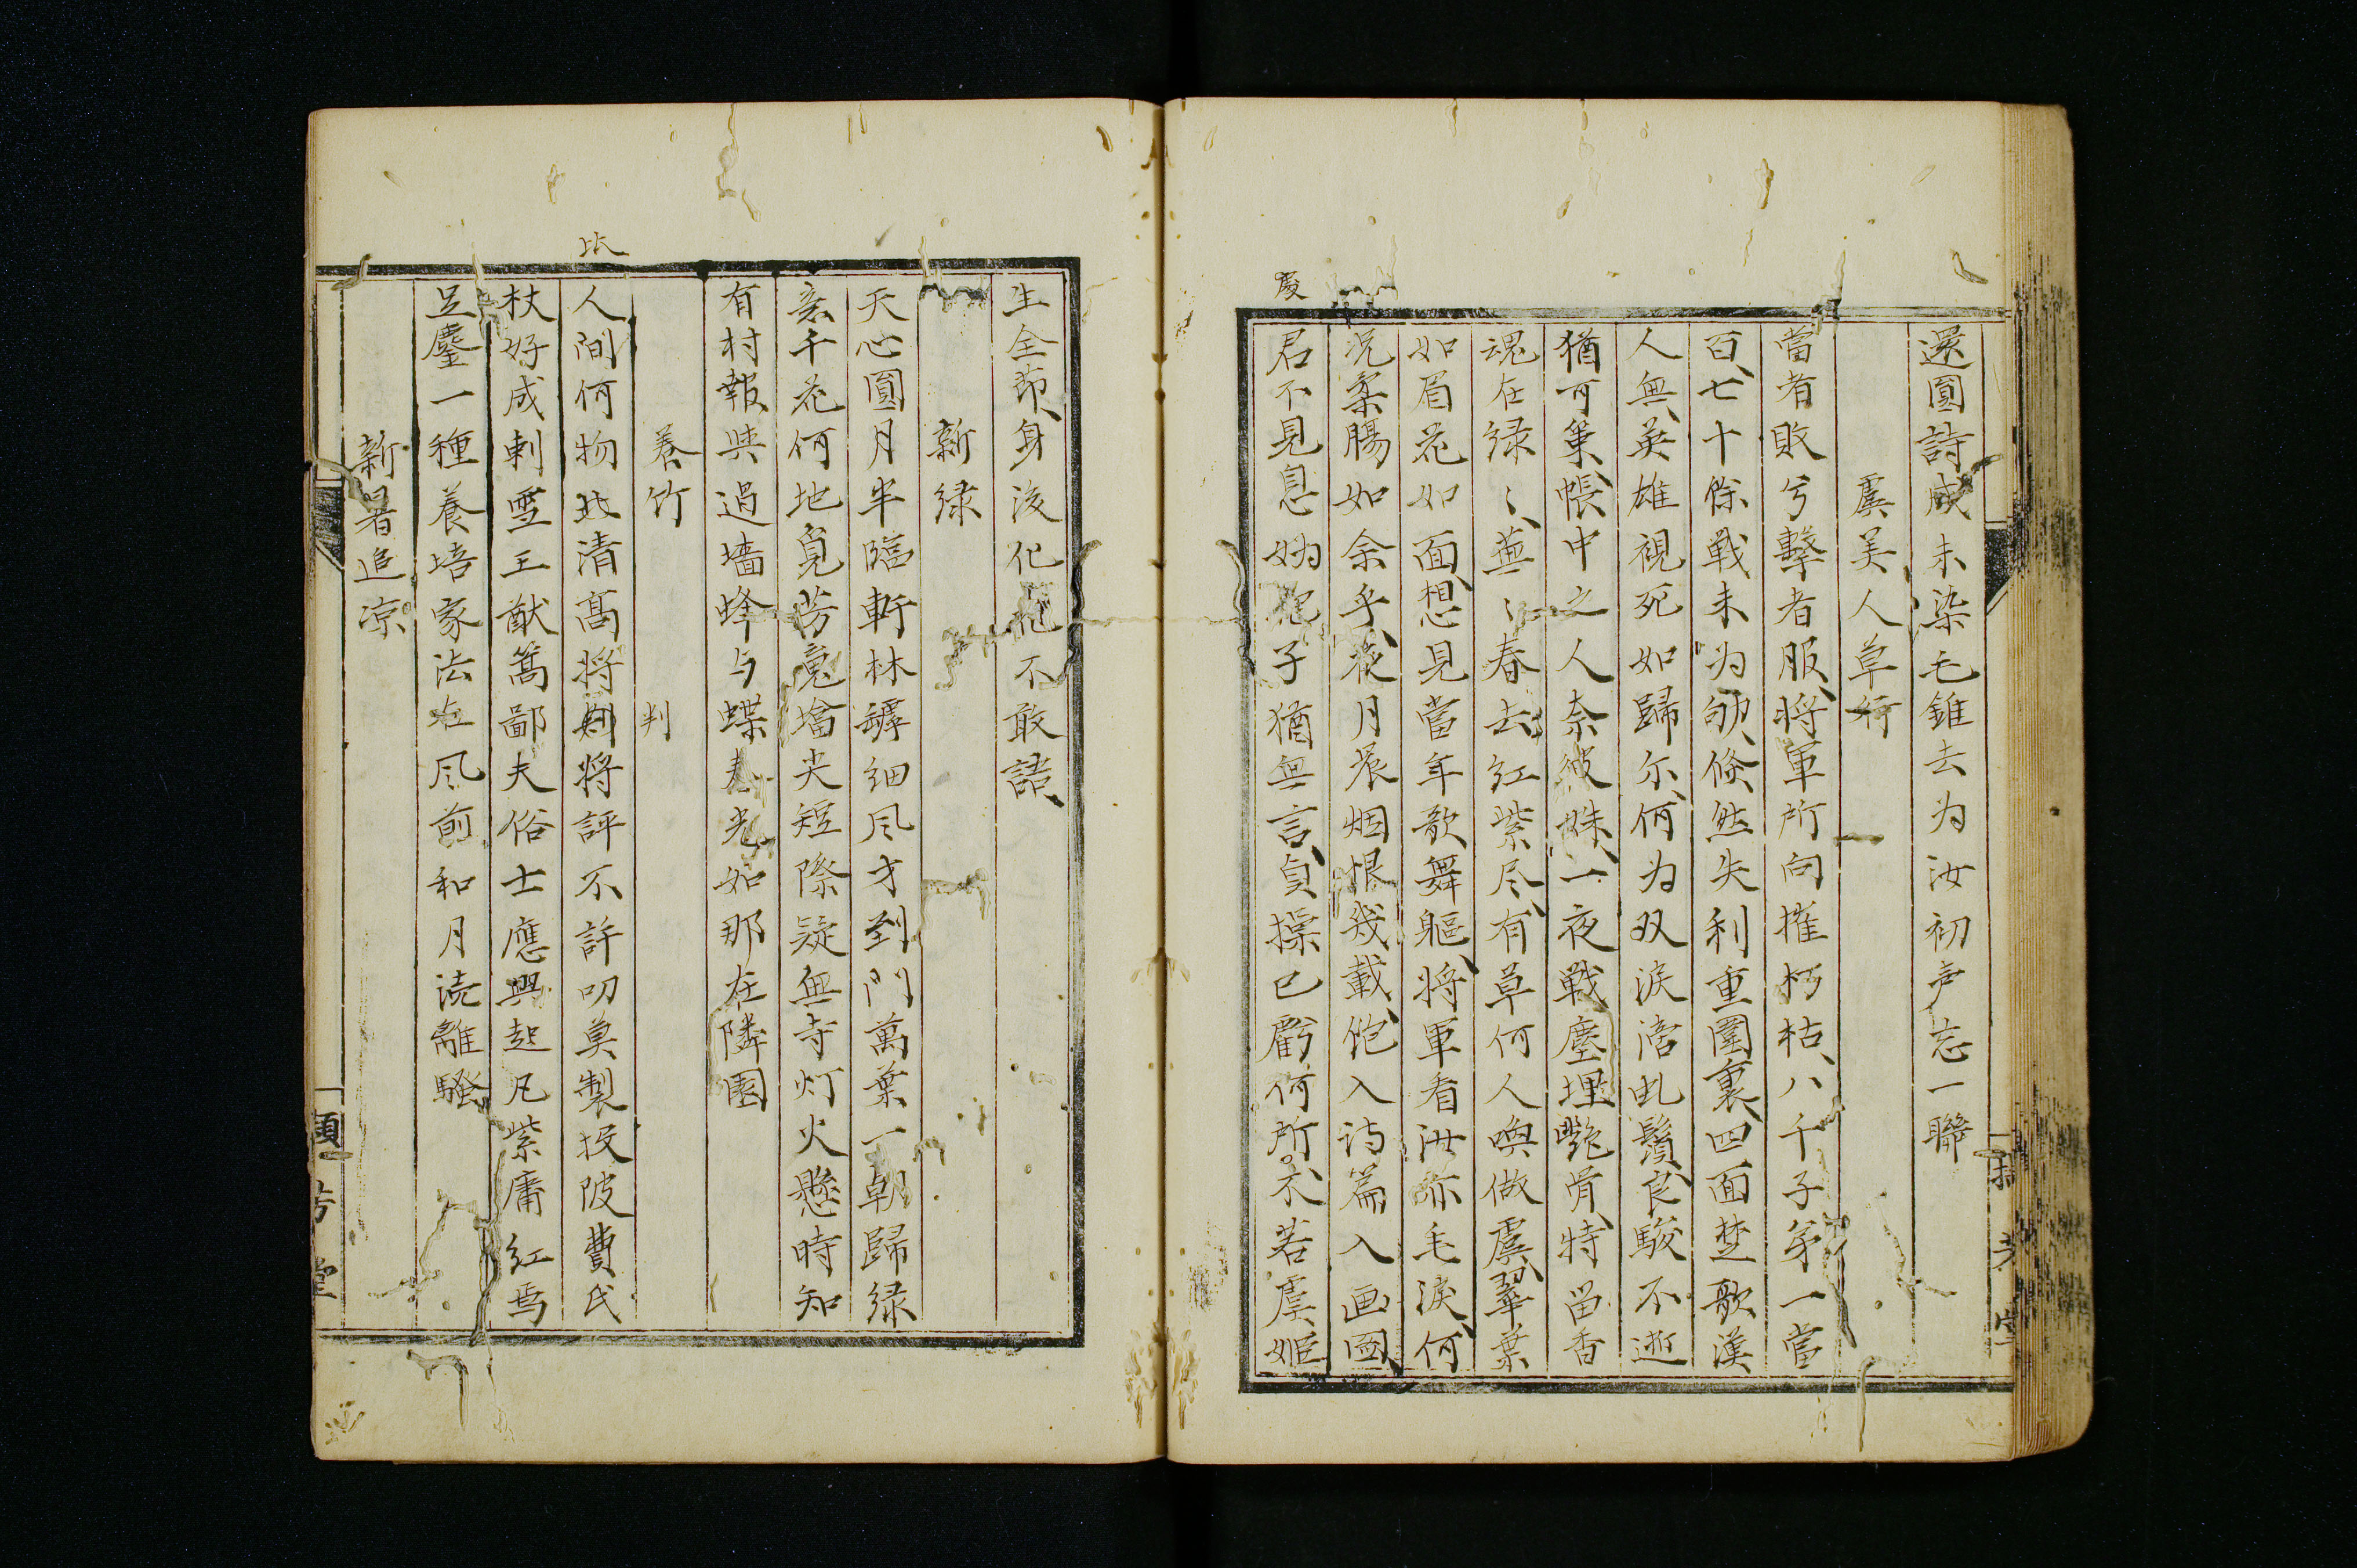 還圓詩成未染毛錐去为汝初声忘一聯
虞美人草行
當者敗兮擊者服将軍所向摧朽枯八千子弟一當
百七十餘戦未为倏然失利重圍裏四面楚歌漢
人無英雄視死如歸尔何为双淚滂虬鬚良駿不逝
猶可棄帳中之人奈彼姝一夜戦塵埋艶骨特留香
魂在緑〻蕪〻春去红紫尽有草何人喚做虞翠葉
如眉花如面想見當年歌舞軀将軍看汝亦毛淚何
况柔腸如余乎夜月晨烟恨幾載飽入詩篇入画圖
君不見息媯抱子猶無言貞操已虧何所不若虞姬
慶
生全節身後化花不敢語
新緑
天心圓月半臨軒林罅细風才到門萬葉一朝歸緑
千花何地覓芳魂墻尖短際疑無寺灯火懸時知
有村報與過墻蜂与蝶春光如那在隣園
養竹
判
人间何物此清高将剣将評不許叨莫製投陂費氏
比
杖好成剌雪王猷篙鄙夫俗士應興起凡紫庸红焉
足鏖一種養培家法在風前和月読離騒
新暑追凉
芳堂